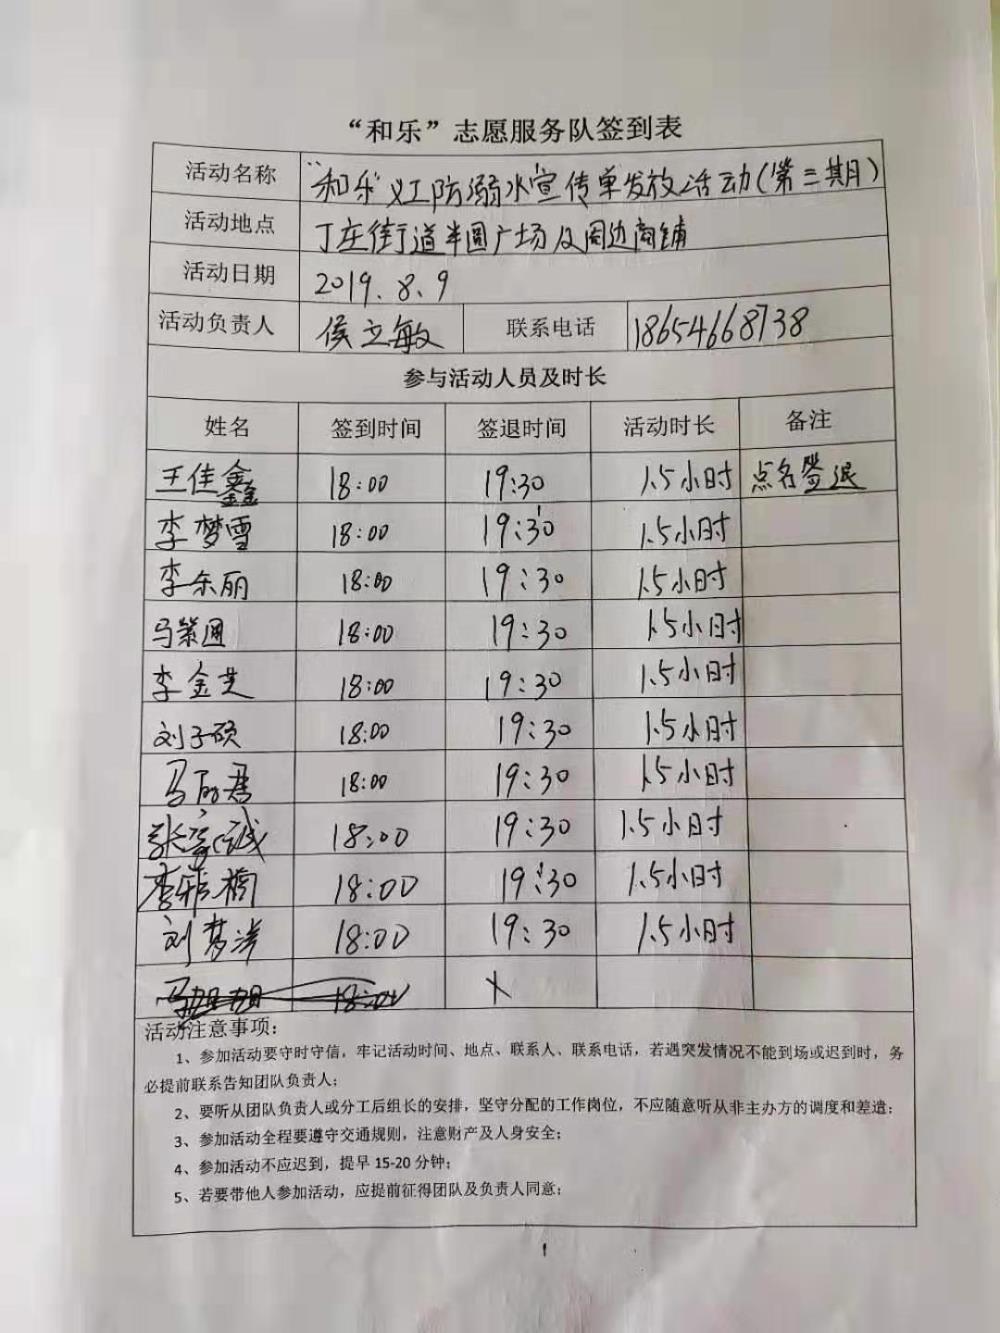 “和乐”志愿服务队签到表
活动名称 “和乐”义工防溺水宣传单发放活动(第三期)
活动地点 丁庄街道半圆广场及周边商铺
活动日期 2019.8.9
活动负责人 侯立敏 联系电话 18654668738
参与活动人员及时长
姓名 签到时间 签退时间 活动时长 备注
王佳鑫 18:00 19:30 1.5小时 点名签退
李梦雪 18:00 19:30 1.5小时
李东丽 18:00 19:30 1.5小时
18:00 19:30 1.5小时
李金芝 18:00 19:30 1.5小时
刘子硕 18:00 19:30 1.5小时
18:00 19:30 1.5小时
18:00 19:30 1.5小时
李雅楠 18:00 19:30 1.5小时
18:00 19:30 1.5小时
活动注意事项:
1、参加活动要守时守信，牢记活动时间、地点、联系人、联系电话，若遇突发情况不能到场或迟到时，务
必提前联系告知团队负责人；
2、要听从团队负责人或分工后组长的安排，坚守分配的工作岗位，不应随意听从非主办方的调度和差遣；
3、参加活动全程要遵守交通规则，注意财产及人身安全；
4、参加活动不应迟到，提早 15-20 分钟；
5、若要带他人参加活动，应提前征得团队及负责人同意；
1